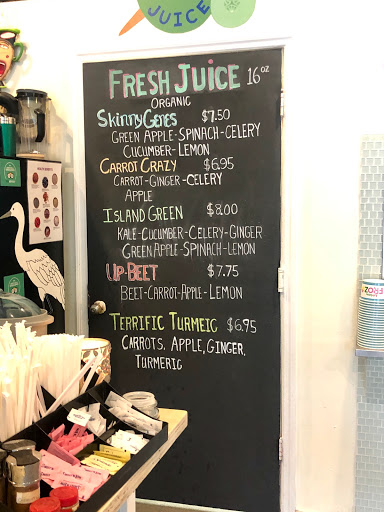 JUICE
FRESH JUICE 16 oz
ORGANIC
SkinnyGenes $7.50
GREEN APPLE-SPINACH-CELERY
CUCUMBER-LEMON
CARROT CRAZY $6.95
CARROT-GINGER-CELERY
APPLE
ISLAND GREEN $8.00
KALE-CUCUMBER-CELERY-GINGER
GREEN APPLE-SPINACH-LEMON
UP-BEET $7.75
BEET-CARROT-APPLE-LEMON
TERRIFIC TURMEIC $6.95
CARROTS, APPLE, GINGER,
TURMERIC